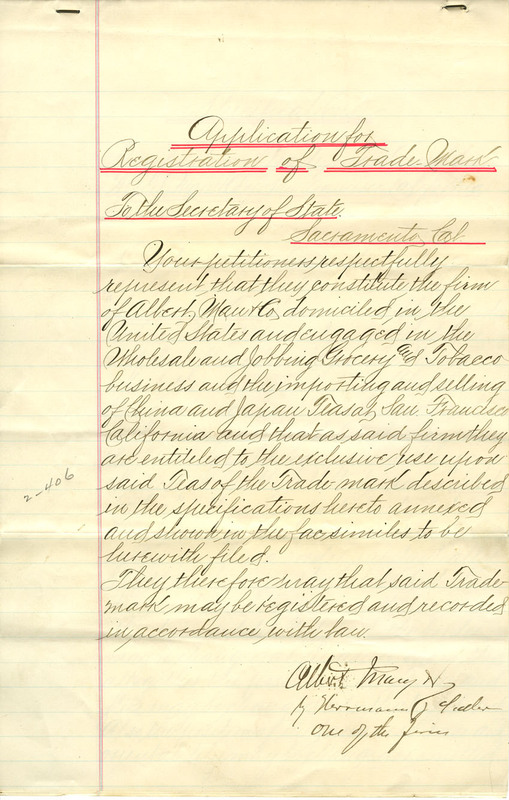 Application for
Registration of Trade-Mark
To the Secretary of State.
Sacramento, Cal
Your petitioners respectfully
represent that they constitute the firm
of Albert, Mau & Co, domiciled in the
United States and engaged in the
Wholesale and Jobbing Grocery and Tobacco
business and the importing and selling
of China and Japan Teas at San Francisco
California and that as said firm they
are entiteled to the exclusive use upon
said Teas of the Trade mark described
in the specifications hereto annexed
and shown in the facsimiles to be
herewith filed.
They therefore pray that said Trade
mark may be registered and recorded
in accordance with law.
2-406
Albert Mau &
by Herrmann
One of the firm